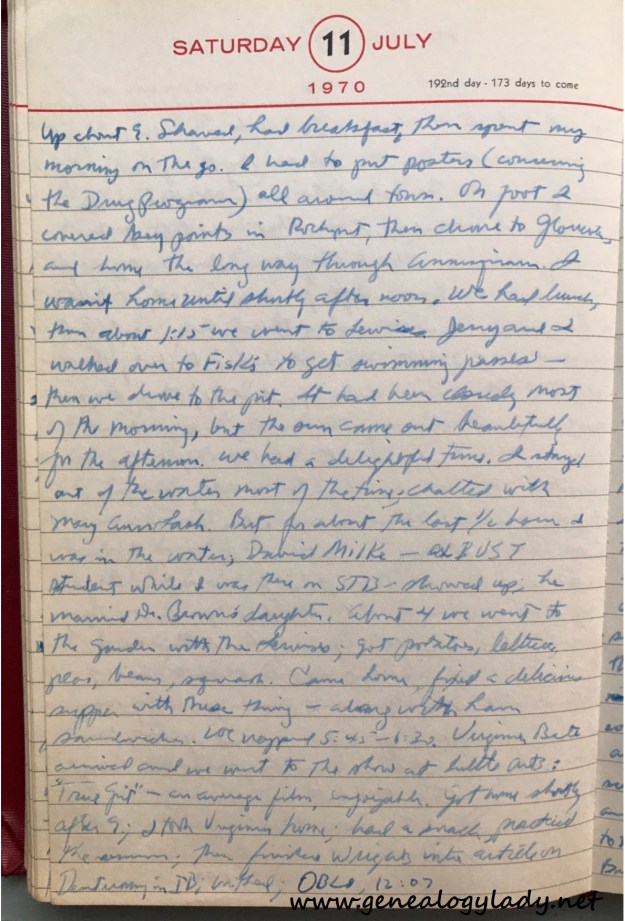 SATURDAY 11 JULY
1970 192nd day - 173 days to come
Up about 9. Shaved, had breakfast, then spent my
morning on the go. I had to put posters (concerning
the Drug Program) all around town. On foot I
covered key points in Rockport, then drove to Gloucester
and home the long way through Annisquam. I
wasn't home until shortly after noon. We had lunch,
then about 1:15 we went to Lewises. Jerry and I
walked over to Fisk's to get swimming passes -
then we drove to the pit. It had been cloudy most
of the morning, but the sun came out beautifully
for the afternoon. We had a delightful time. I stayed
out of the water most of the time, chatted with
Mary Ann Lash. But for about the last 1/2 hour I
was in the water; David Milke - a BUST
student while I was there on STB - showed up; he
married Dr. Brown's daughter. About 4 we went to
the garden with the Lewises; got potatoes, lettuce,
peas, beans, squash. Came home, fixed a delicious
supper with these things - along with ham
sandwiches. We napped 5:45-6:30. Virginia
arrived and we went to the show at Little Arts:
"True Grit" - an average film, enjoyable. Got home shortly
after 9; I took Virginia home; had a snack, practiced
the sermon, then finished Wright's intro article on
Deuteronomy in IB; bathed; 12:07
www.genealogylady.net